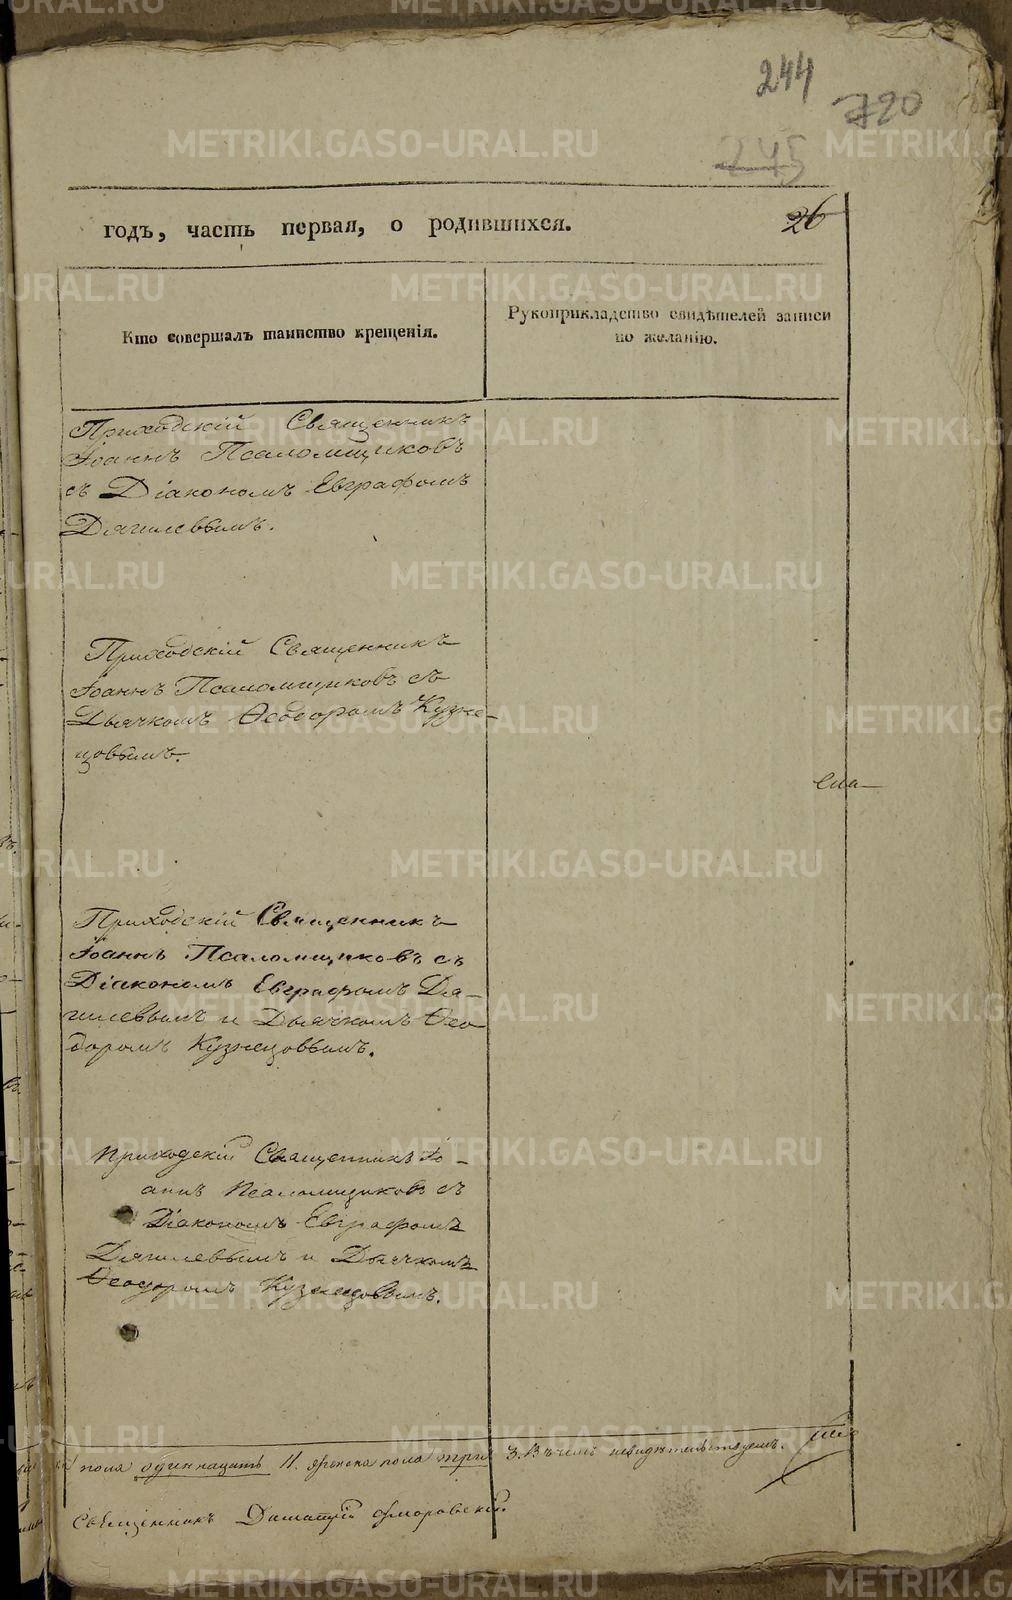 244
720
245
годъ, часть первая, о родившихся.
26
Кто совершалъ таинство крещенія.
Рукоприкладство свидѣтелей записи
по желанію.
Приходскій Священникъ
Іоаннъ Псаломщиковъ
съ Діакономъ Евграфомъ
Дягилевымъ.
Приходскій Священникъ
Іоаннъ Псаломщиковъ съ
Дьячкомъ Ѳеодоромъ Кузне-
цовымъ.
Приходскій Священникъ
Іоаннъ Псаломщиковъ съ
Діакономъ Евграфомъ Дя-
гилевымъ и Дьячкомъ Ѳео
доромъ Кузнецовымъ.
Приходскій Священникъ Іо-
аннъ Псаломщиковъ съ
Діакономъ Евграфомъ
Дягилевымъ и Дьячкомъ
Ѳеодоромъ Кузнецовымъ.
пола одиннацать 11. женска пола три 3. Въ чемъ свидѣтельствуемъ.
Священникъ Димитрій
METRIKI.GASO-URAL.RU